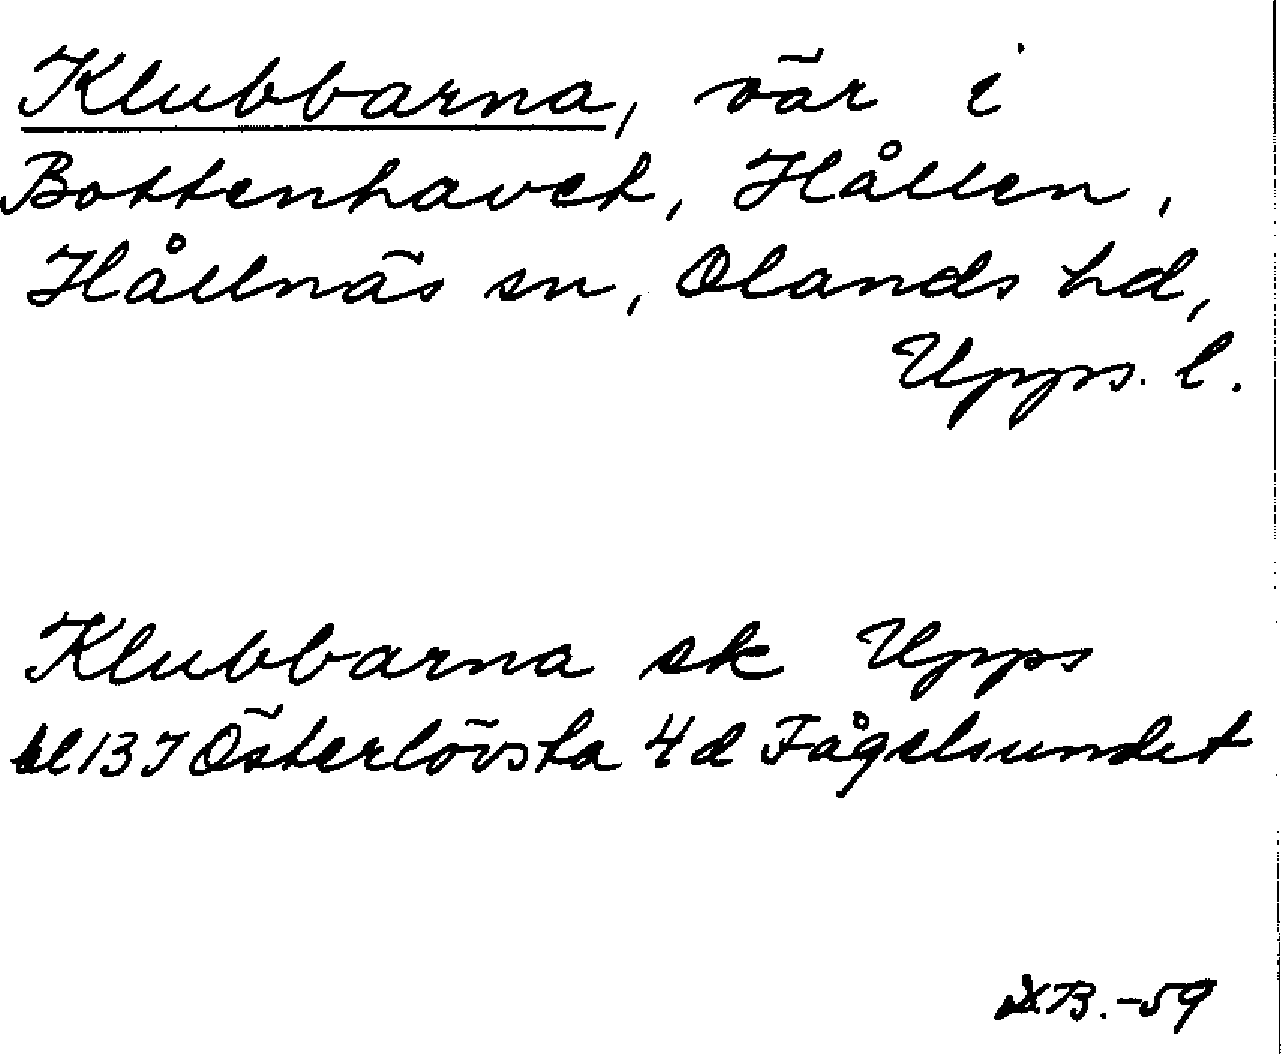 Klubbarna, vär i
Bottenhavet, Hållen,
Hållnäs sn, Olands hd,
Upps. l.
Klubbarna sk Upps
bl 13 I Österlövsta 4d Fågelsundet
B. -59